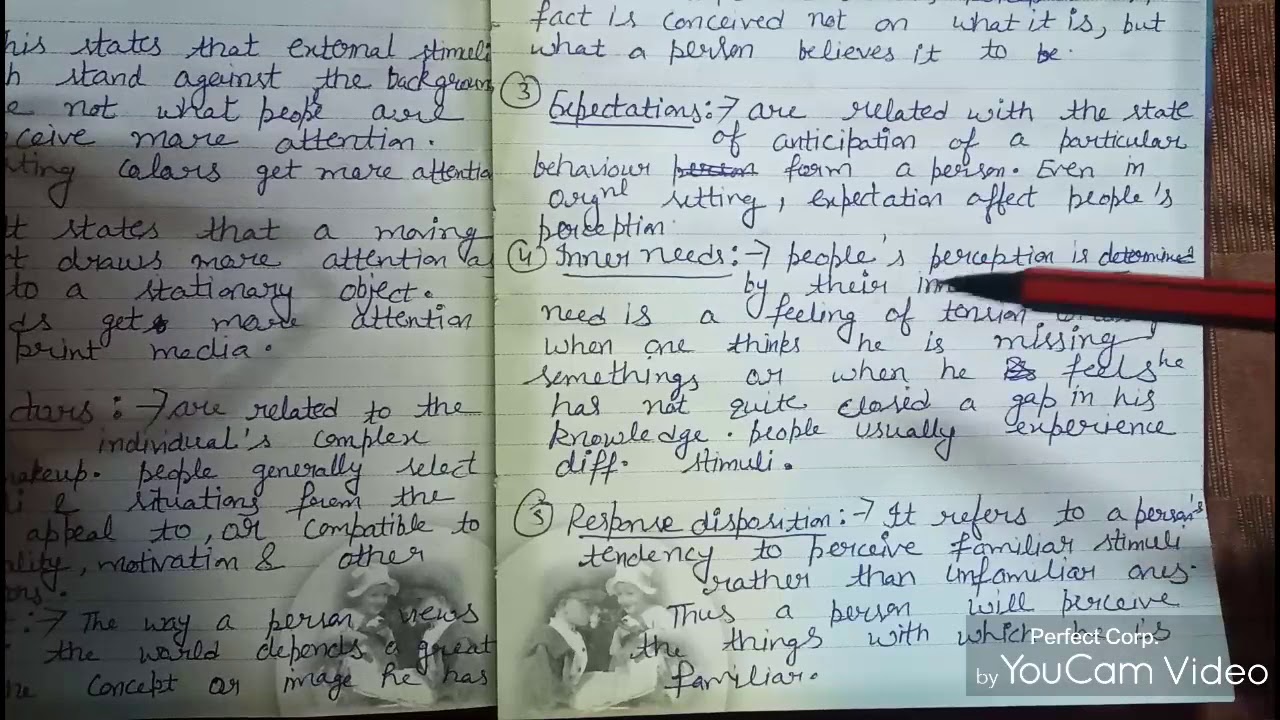 his states that external stimuli
h stand against the backgroun
e not what peope are
ceive mare attention.
ting calars get mare attentio
t states that a moving
t draws mare attention as
to a stationary object.
ds gets mare attention
print media.
ctars :→ are related to the
individual's complex
makeup. people generally select
li & situations from the
appeal to, or compatible to
lity, motivation & other
ors.
t :→ The way a person views
the warld depends a great
he concept or image he has
fact is conceived not on what it is, but
what a person believes it to be.
3 Expectations :→ are related with the state
of anticipation of a particular
behaviour form a person. Even in
orgnl setting, expectation affect people's
perception.
4 Inner needs :→ people's perception is determined
by their inn
need is a feeling of tension
when one thinks he is missing
somethings or when he feels he
has not quite closed a gap in his
knowledge. people usually experience
diff. stimuli.
5 Response disposition :→ It refers to a person's
tendency to perceive familiar stimuli
rather than unfamiliar ones.
Thus a person will perceive
the things with which
familiar.
Perfect Corp.
by YouCam Video